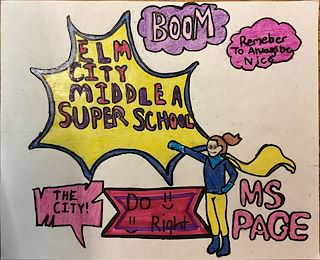 BOOM
Remeber
To Always be
Nice
ELM
CITY
MIDDLE A
SUPER SCHOOL
THE
CITY!
Do
Right
MS
PAGE